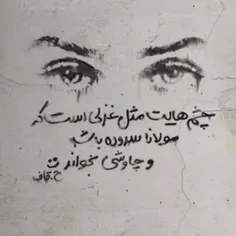 چشم هایت مثل غزلی است که
مولانا سروده باشد
و چاوشی بخواند